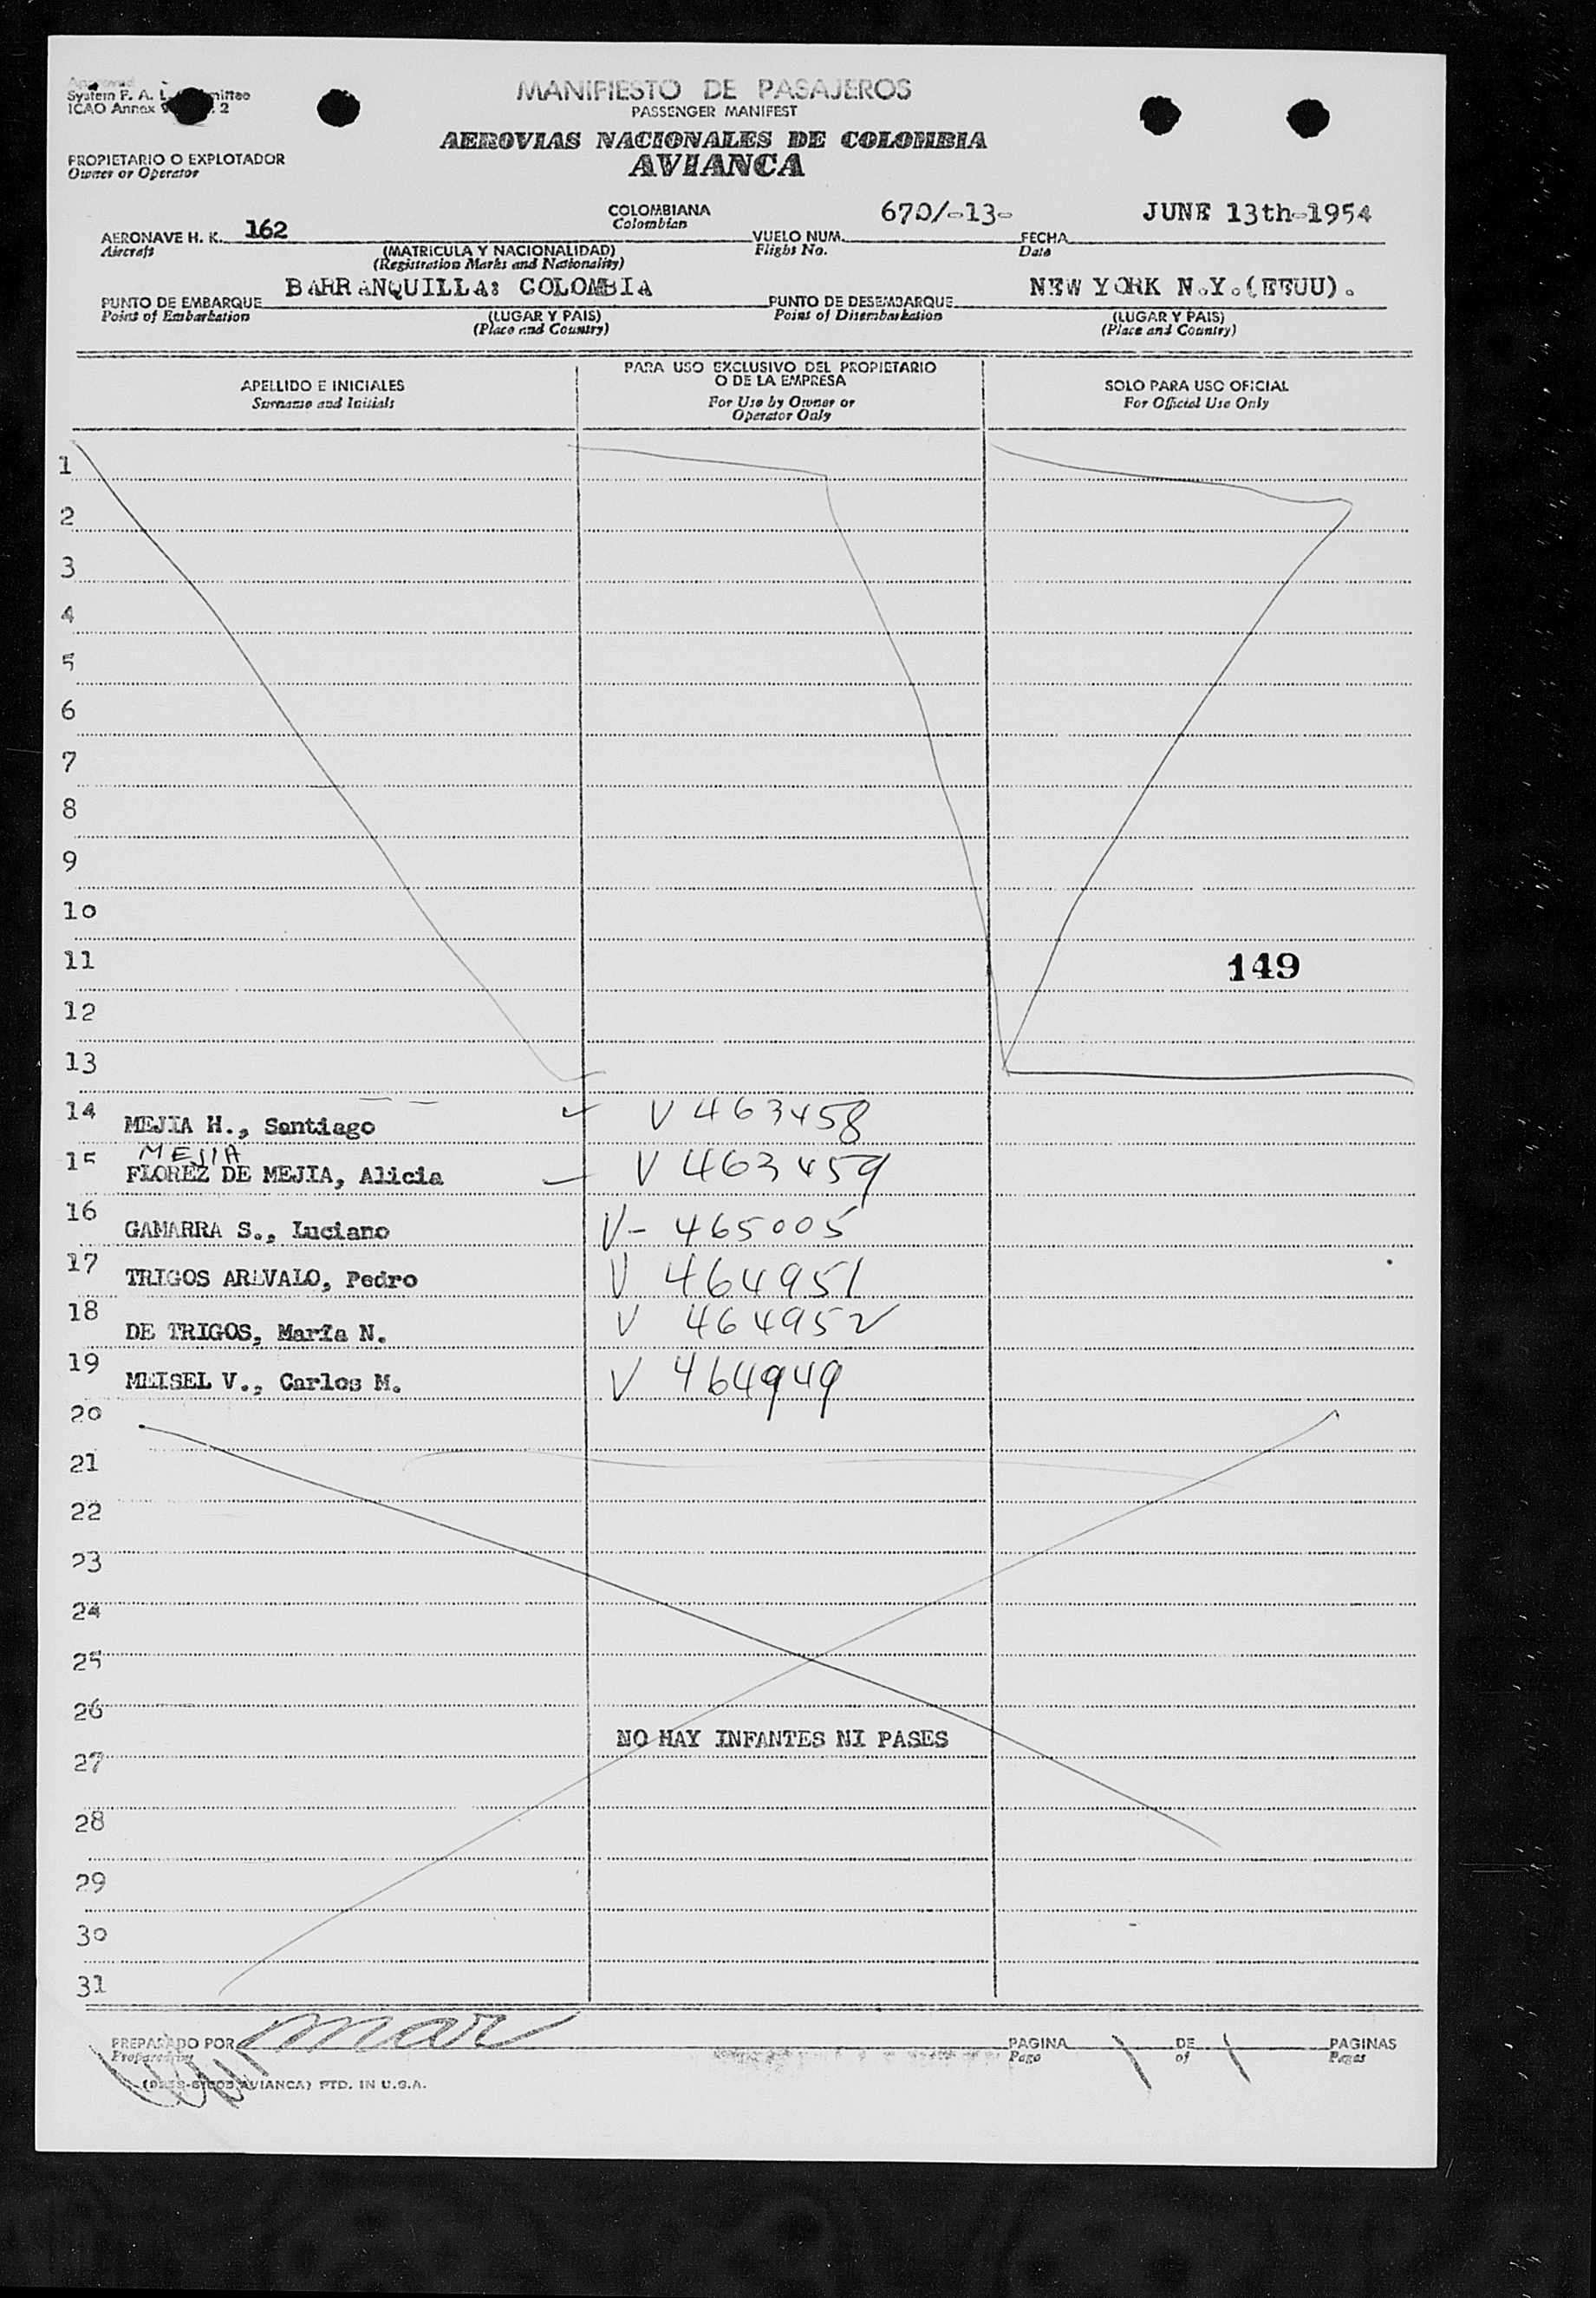 Approved
System F. A. L. Committee
ICAO Annex 9 2
MANIFIESTO DE PASAJEROS
PASSENGER MANIFEST
AEROVIAS NACIONALES DE COLOMBIA
AVIANCA
PROPIETARIO O EXPLOTADOR
Owner or Operator
AERONAVE H. K. 162 COLOMBIANA VUELO NUM. 670/-13- FECHA JUNE 13th-1954
Aircraft Colombian Flight No. Date
(MATRICULA Y NACIONALIDAD)
(Registration Marks and Nationality)
PUNTO DE EMBARQUE BARRANQUILLA: COLOMBIA PUNTO DE DESEMBARQUE NEW YORK N.Y.(EEUU).
Point of Embarkation (LUGAR Y PAIS) Point of Disembarkation (LUGAR Y PAIS)
(Place and Country) (Place and Country)
APELLIDO E INICIALES
Surname and Initials
PARA USO EXCLUSIVO DEL PROPIETARIO
O DE LA EMPRESA
For Use by Owner or
Operator Only
SOLO PARA USO OFICIAL
For Official Use Only
1
2
3
4
5
6
7
8
9
10
11 149
12
13
14 MEJIA H., Santiago V 463458
MEJIA
15 FLOREZ DE MEJIA, Alicia V 463459
16 GAMARRA S., Luciano V- 465005
17 TRIGOS AREVALO, Pedro V 464951
18 DE TRIGOS, María N. V 464952
19 MEISEL V., Carlos M. V 464949
20
21
22
23
24
25
26
NO HAY INFANTES NI PASES
27
28
29
30
31
PREPARADO POR PAGINA 1 DE 1 PAGINAS
Prepared by Page of Pages
AVIANCA) PTD. IN U.S.A.